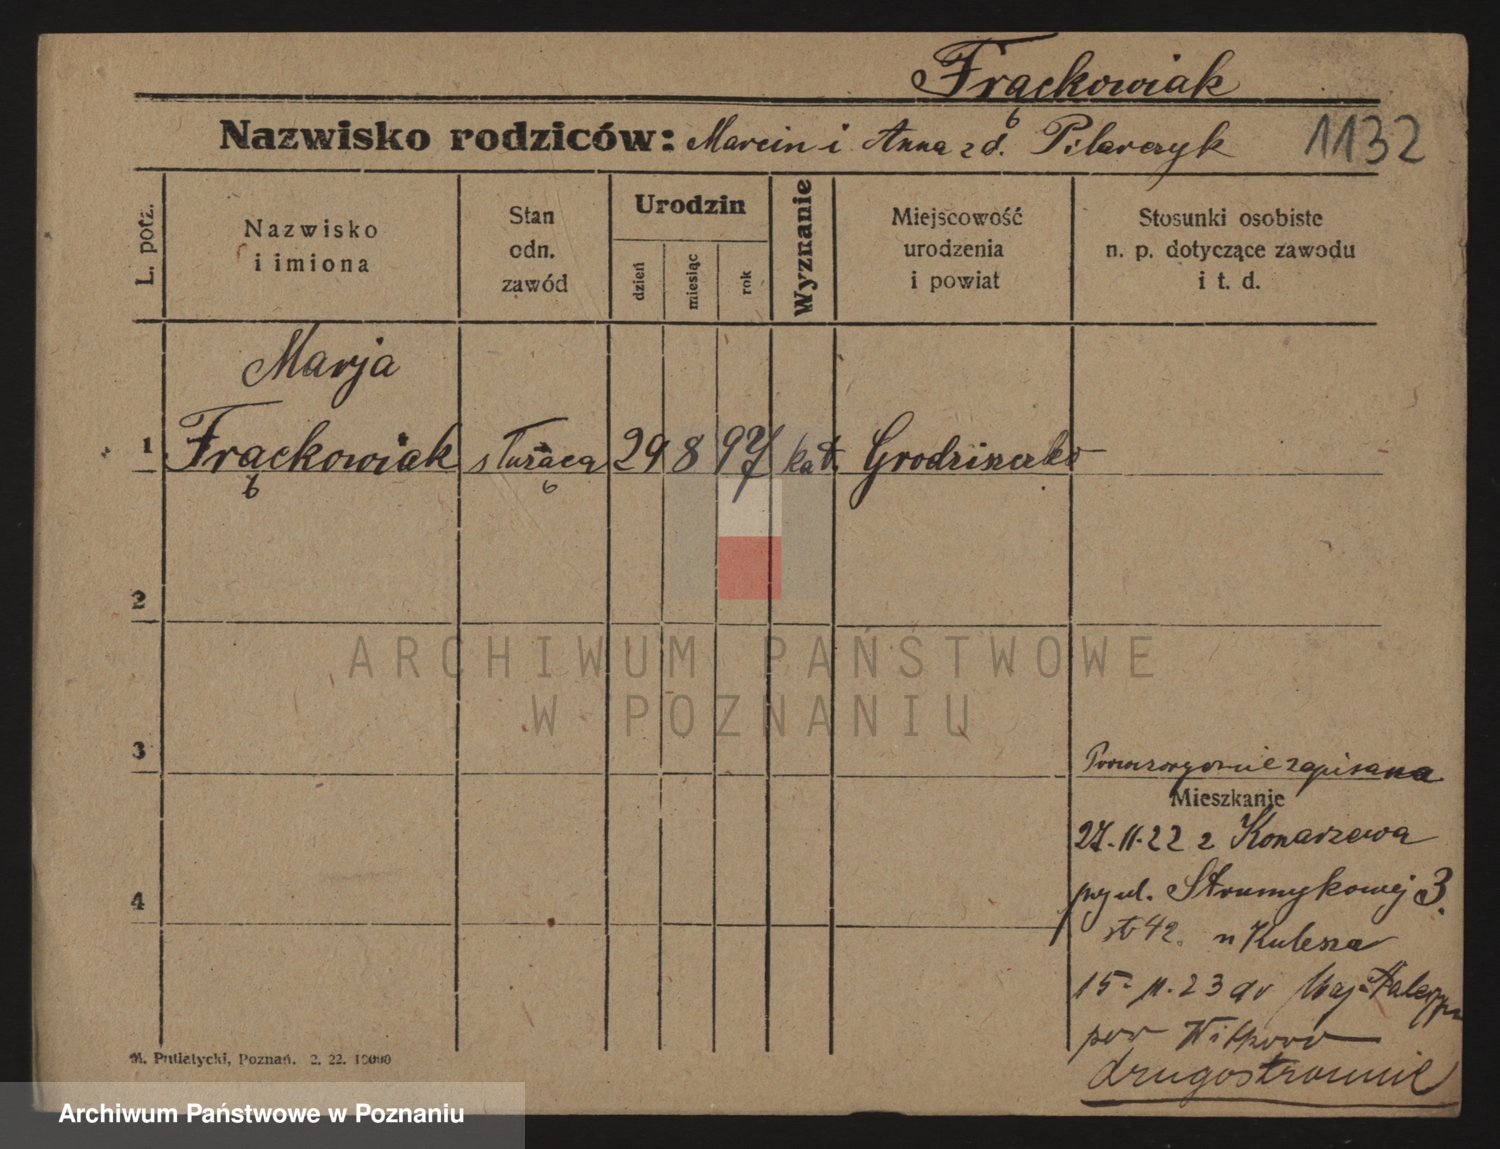 Frąckowiak
Nazwisko rodziców: Marcin i Anna z d. Pilarczyk 1132
L. potz.
Nazwisko
i imiona
Stan
odn.
zawód
Urodzin
dzień
miesiąc
rok
Wyznanie
Miejscowość
urodzenia
i powiat
Stosunki osobiste
n. p. dotyczące zawodu
i t. d.
Marja
1 Frąckowiak służąca 29 8 97 kat. Grodziszczko
2
3
zapisana
Mieszkanie
27.11.22 z Konarzewa
przy ul. Strumykowej 3.
42. u Kulesza
15.11.23 do Maj.
pow Witkowo
drugostronnie
4
M. Putiatycki, Poznań. 2. 22. 10000
ARCHIWUM PAŃSTWOWE
W POZNANIU
Archiwum Państwowe w Poznaniu